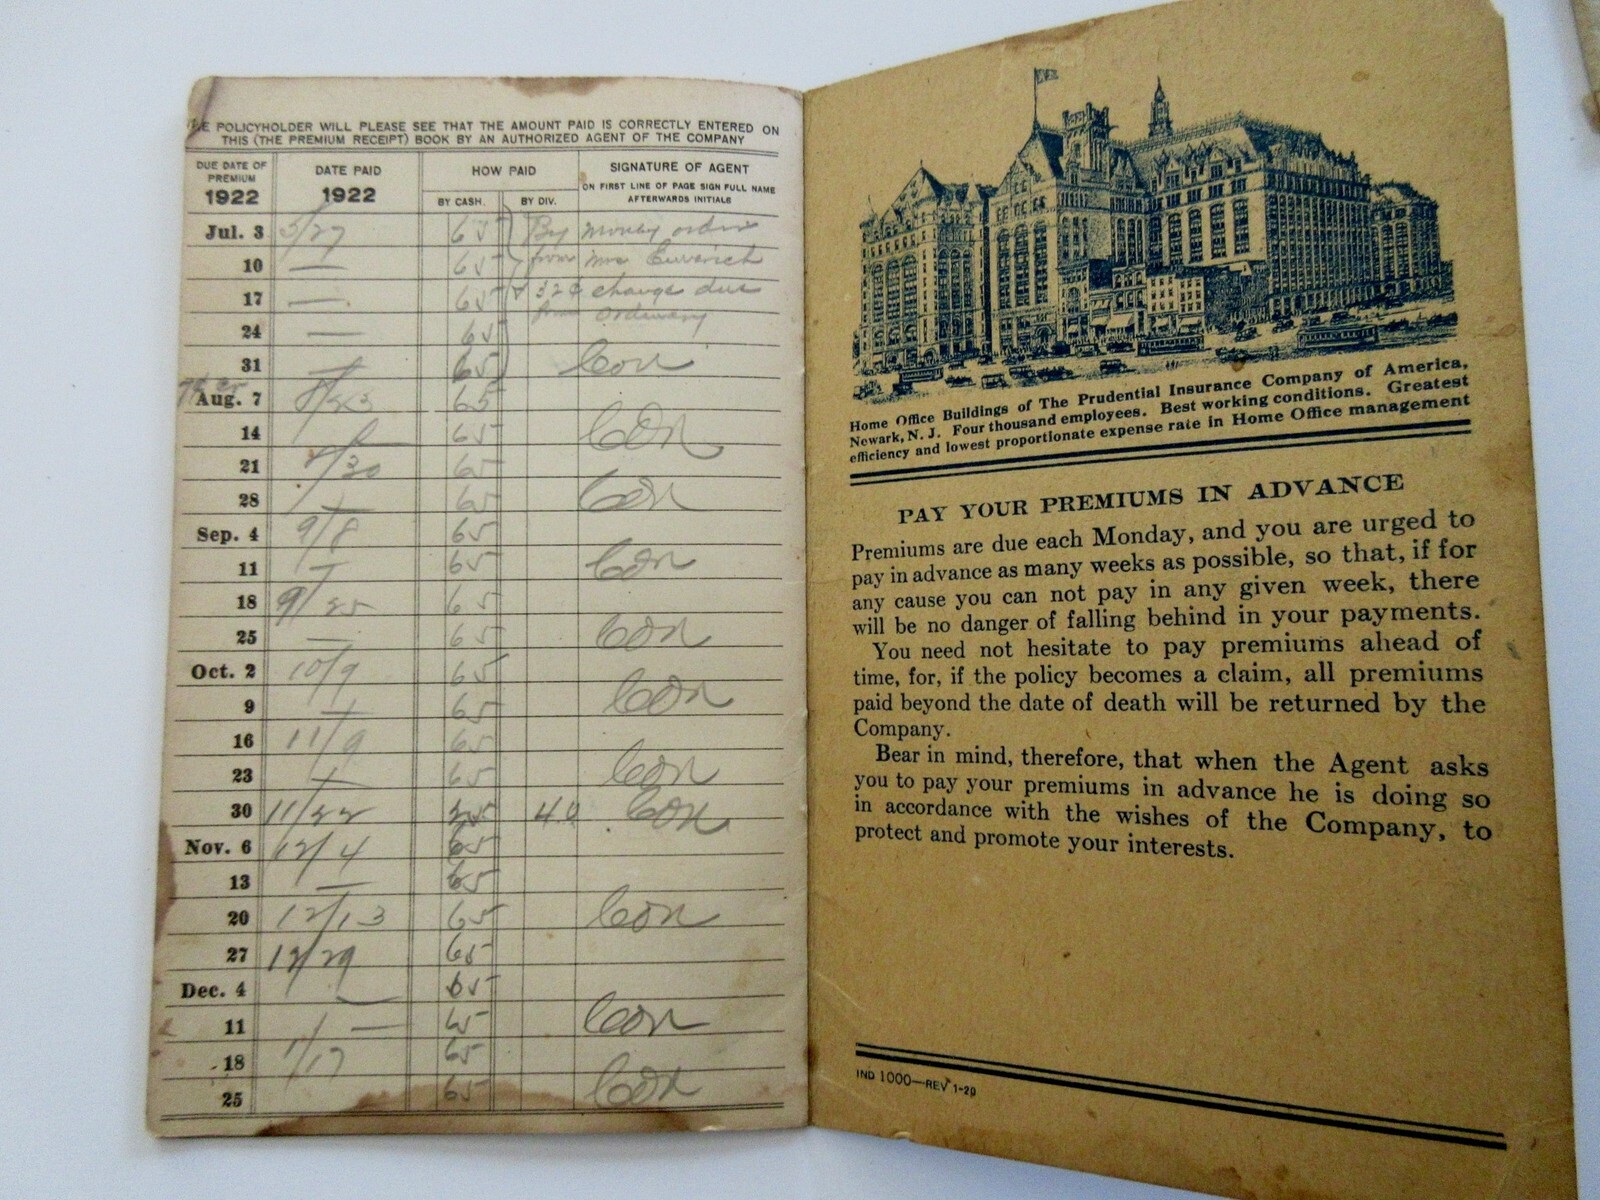 E POLICYHOLDER WILL PLEASE SEE THAT THE AMOUNT PAID IS CORRECTLY ENTERED ON
THIS (THE PREMIUM RECEIPT) BOOK BY AN AUTHORIZED AGENT OF THE COMPANY
DUE DATE OF PREMIUM 1922 DATE PAID 1922 HOW PAID BY CASH. BY DIV. SIGNATURE OF AGENT
ON FIRST LINE OF PAGE SIGN FULL NAME
AFTERWARDS INITIALS
Jul. 3 5/27 65 By money order
10 — 65 from Mrs
17 — 65 32¢ change due
from ordinary
24 — 65
31 — 65 Con
Aug. 7 8/23 65
14 — 65 Con
21 8/30 65
28 — 65 Con
Sep. 4 9/8 65
11 — 65 Con
18 9/25 65
25 — 65 Con
Oct. 2 10/9 65
9 — 65 Con
16 11/9 65
23 — 65 Con
30 11/22 25 40 Con
Nov. 6 12/4 65
13 — 65
20 12/13 65 Con
27 12/29 65
Dec. 4 — 65
11 — 65 Con
18 1/17 65
25 65 Con
Home Office Buildings of The Prudential Insurance Company of America,
Newark, N. J. Four thousand employees. Best working conditions. Greatest
efficiency and lowest proportionate expense rate in Home Office management
PAY YOUR PREMIUMS IN ADVANCE
Premiums are due each Monday, and you are urged to
pay in advance as many weeks as possible, so that, if for
any cause you can not pay in any given week, there
will be no danger of falling behind in your payments.
You need not hesitate to pay premiums ahead of
time, for, if the policy becomes a claim, all premiums
paid beyond the date of death will be returned by the
Company.
Bear in mind, therefore, that when the Agent asks
you to pay your premiums in advance he is doing so
in accordance with the wishes of the Company, to
protect and promote your interests.
IND 1000—REV 1-20